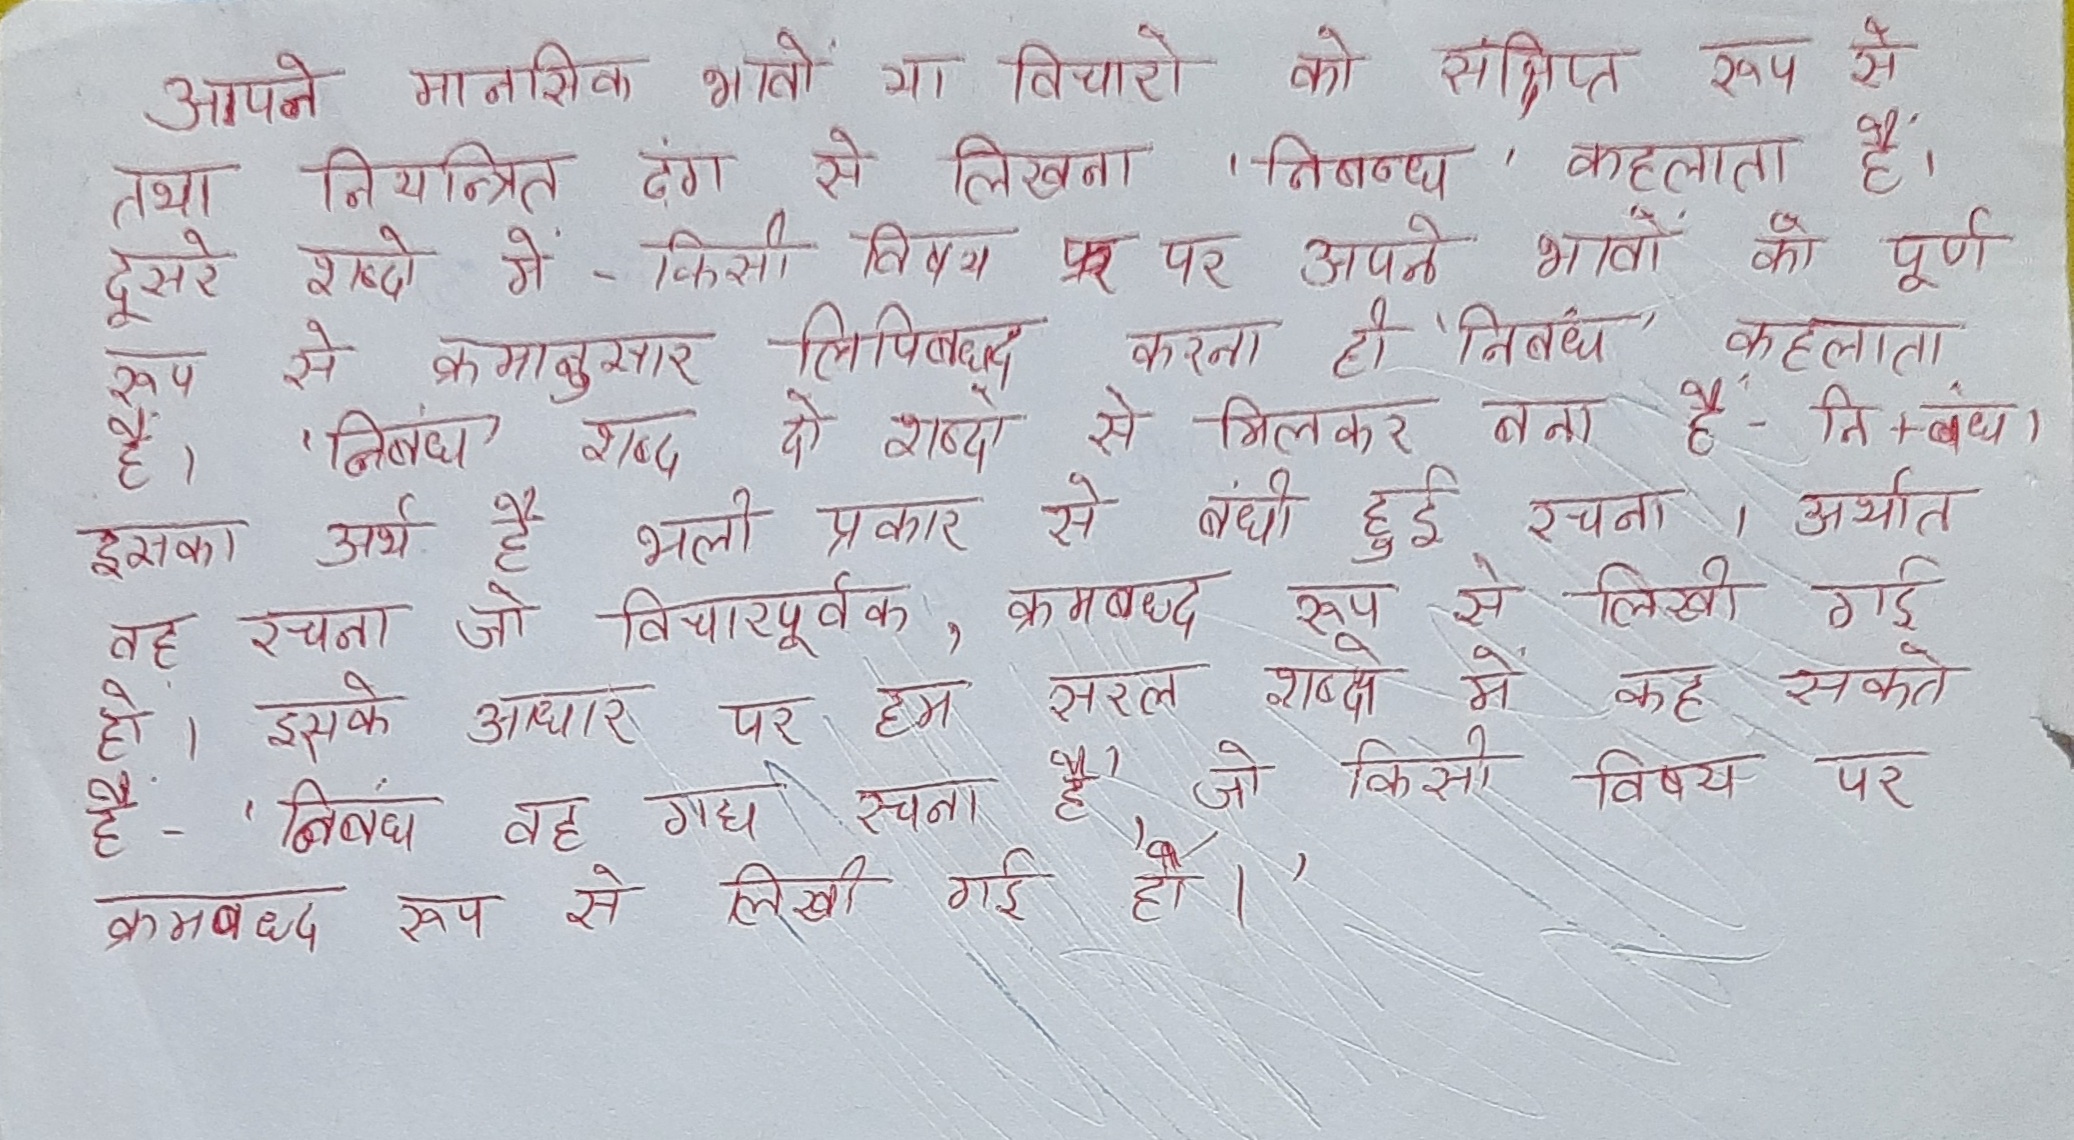 आपने मानसिक भावों या विचारो को संक्षिप्त रूप से
तथा नियन्त्रित ढंग से लिखना 'निबन्ध' कहलाता हैं।
दूसरे शब्दो में - किसी विषय पर अपने भावों को पूर्ण
रूप से क्रमानुसार लिपिबध्द करना ही 'निबंध' कहलाता
हैं। 'निबंध' शब्द दो शब्दों से मिलकर बना हैं - नि + बंध।
इसका अर्थ हैं भली प्रकार से बंधी हुई रचना। अर्थात
वह रचना जो विचारपूर्वक, क्रमबध्द रूप से लिखी गई
हो। इसके आधार पर हम सरल शब्दो में कह सकते
हैं - 'निबंध वह गद्य रचना हैं, जो किसी विषय पर
क्रमबध्द रूप से लिखी गई हों।'